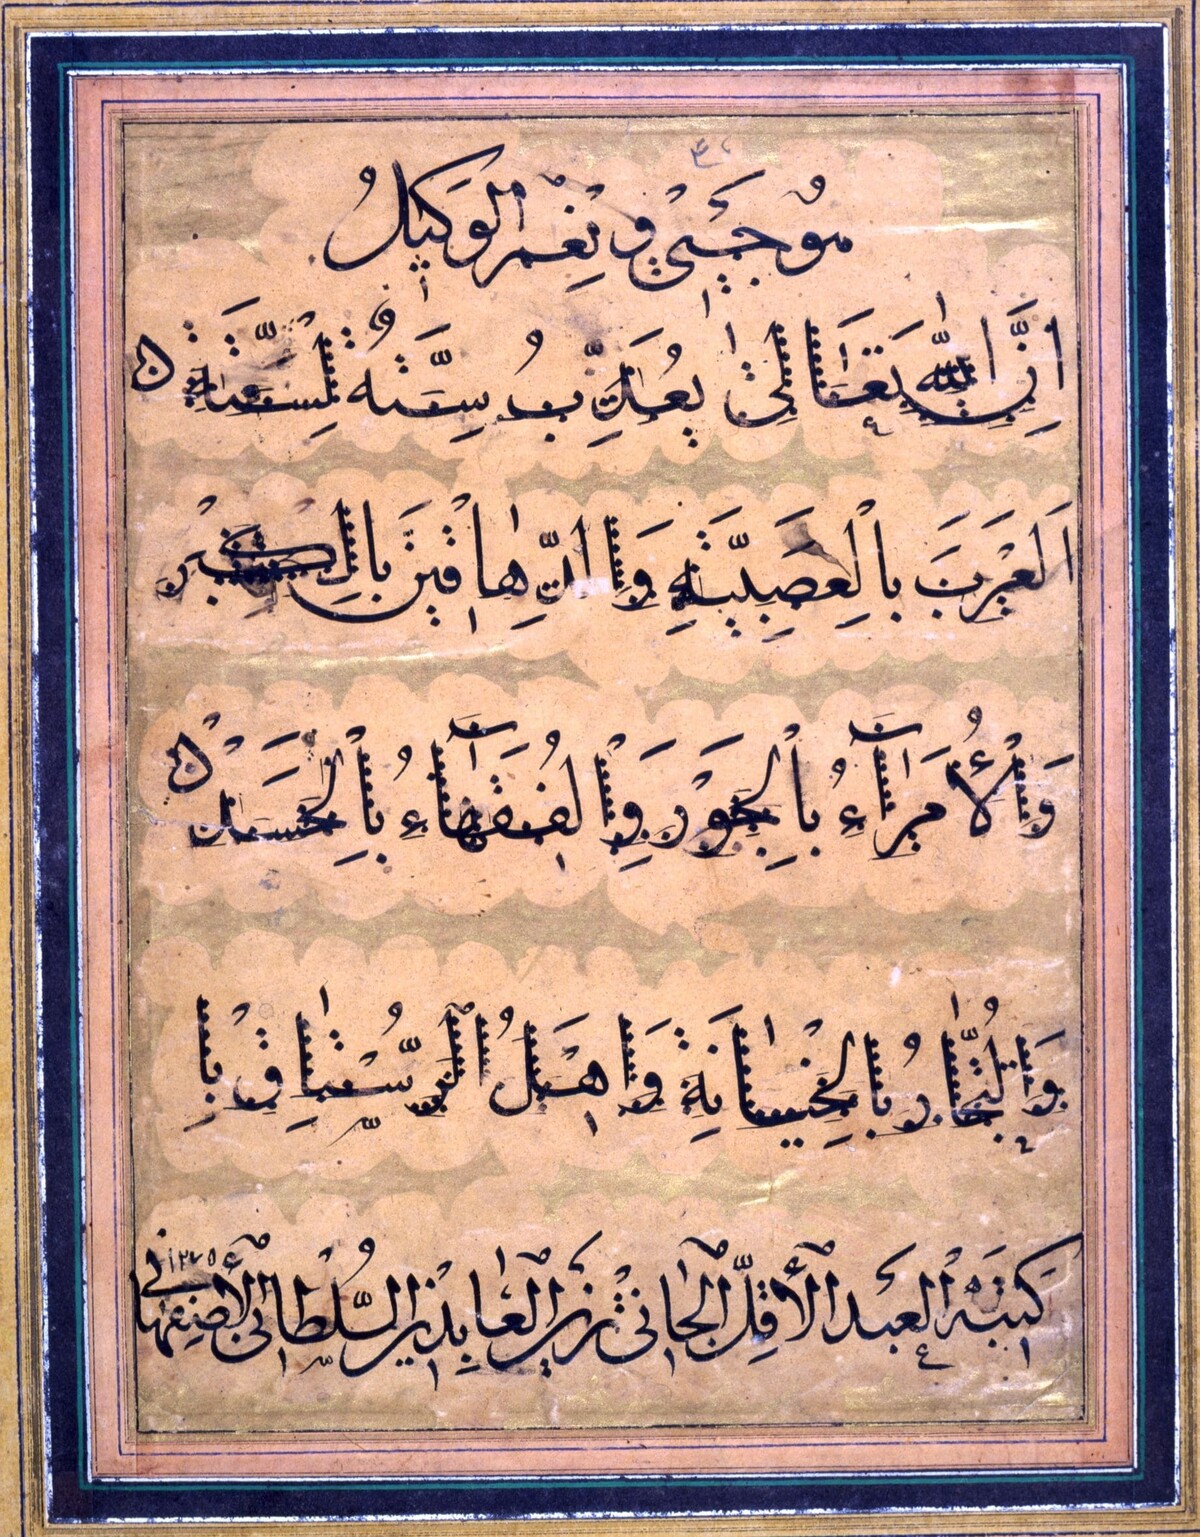 هو حسبي ونعم الوكيل
اِنَّ اللّٰهَ تَعَالىٰ يُعَذِّبُ سِتَّةً بِسِتَّةٍ
اَلْعَرَبَ بِالْعَصَبِيَّةِ وَالدَّهاقينَ بِالْكِبْرِ
وَالْأُمَرَآءُ بِالْجَوْرِ وَالْفُقَهَآءُ بِالْحَسَدْ
وَالتُّجَّارُ بِالْخِيَانَةِ وَاَهْلُ الرُّسْتَاقِ بِا
كَتَبَهُ الْعَبْدُ الْأَقَلُّ الْجانى زين العابدين السُّلْطانى الاصفهانى ١٢٧٥